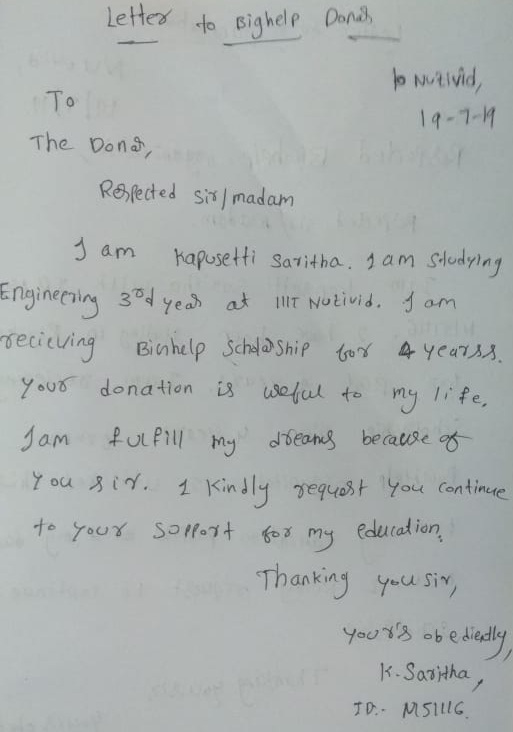 Letter to Bighelp Donar
Nuzivid,
To
19-7-19
The Donar,
Respected sir/madam
I am Kapusetti Saritha. I am studying
Engineering 3rd year at IIIT Nuzivid. I am
recieving Bighelp ScholarShip for 4 yearss.
your donation is useful to my life.
I am fulfill my dreams because of
you sir. I kindly request you continue
to your support for my education.
Thanking you sir,
your's obediently,
K. Saritha,
ID:- M51116.